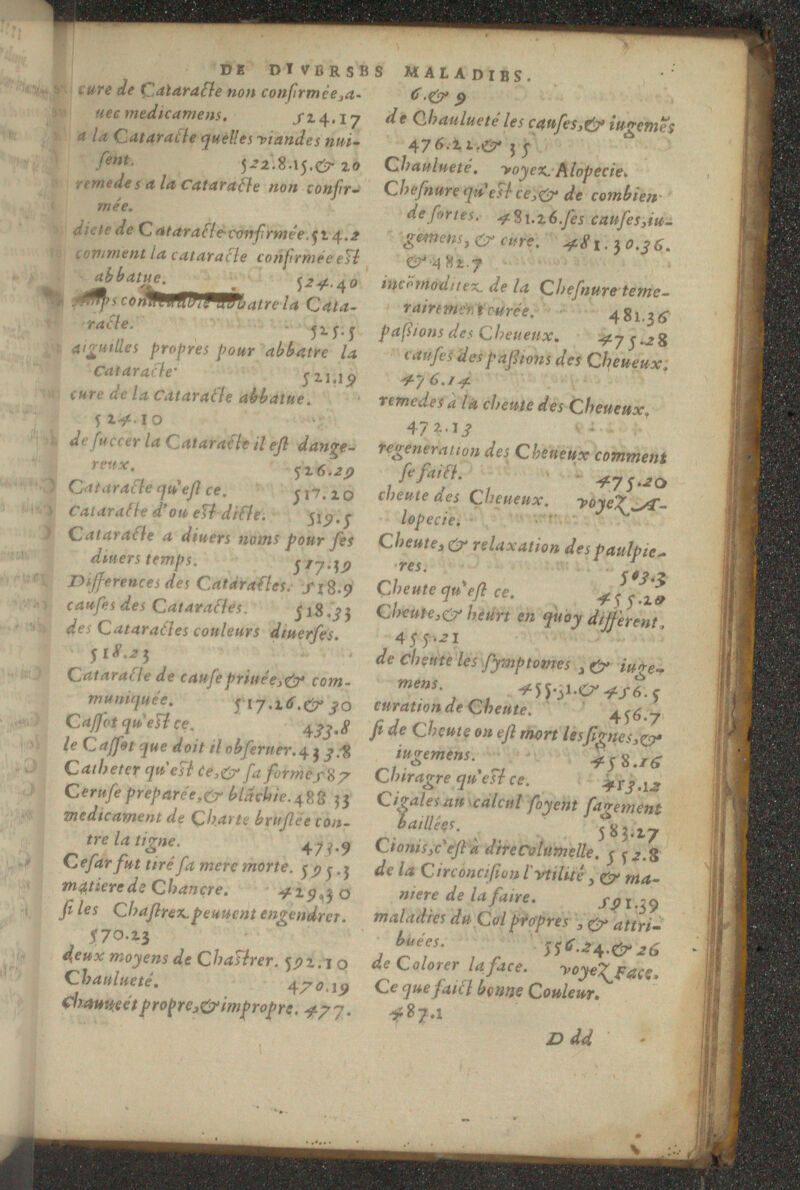 DE DIVERSES MALADIES.
cure de Cataracte non confirmée,a-
uec medicamens. 524.17
a la Cataracte quelles viandes nui-
sent. 522.8.15.& 20
remedes a la Cataracte non confir-
mée.
diete de Cataracte confirmée. 524.2
comment la cataracte confirmée est
abbatue. 524.40
abbatre la Cata-
racte. 525.5
aiguilles propres pour abbatre la
Cataracte 521.19
cure de la Cataracte abbatue.
524.10
de succer la Cataracte il est dange-
reux. 526.29
Cataracte qu'est ce. 517.20
Cataracte d'ou est dicte. 519.5
Cataracte a diuers noms pour ses
diuers temps. 517.39
Differences des Cataractes. 518.9
causes des Cataractes. 518.33
des Cataractes couleurs diuerses.
518.23
Cataracte de cause priuée,& com-
muniquée. 517.26.& 30
Cassot qu'est ce. 433.8
le Cassot que doit il obseruer. 433.8
Catheter qu'est ce,& sa forme 587
Ceruse preparée,& blachie. 488 33
medicament de Charte bruslée con-
tre la tigne. 473.9
Cesar fut tiré sa mere morte. 595.3
matiere de Chancre. 429.30
si les Chastrez peuuent engendrer.
570.23
deux moyens de Chastrer. 592.10
Chaulueté. 470.19
Chauueét propre,& impropre. 477.
6.& 9
de Chaulueté les causes,& iugemẽs
476.22.& 35
Chaulueté. voyez Alopecie.
Chesnure qu'est ce,& de combien
de sortes. 481.26. ses causes,iu-
gemens, & cure. 481.30.36.
& 482.7
incõmoditez de la Chesnure teme-
rairement curée. 481.36
passions des Cheueux. 475.28
causes des passions des Cheueux.
476.14
remedes à la cheute des Cheueux.
472.13
regeneration des Cheueux comment
se faict. 475.20
cheute des Cheueux. voyez A-
lopecie.
Cheute, & relaxation des paulpie-
res. 503.3
Cheute qu'est ce. 455.20
Cheute,& heurt en quoy different.
455.21
de Cheute les symptomes , & iuge-
mens. 455.31.& 456.5
curation de Cheute. 456.7
si de Cheute on est mort les signes,&
iugemens. 458.16
Chiragre qu'est ce. 413.12
Cigales au calcul soyent sagement
baillées. 583.27
Cionis,c'est à dire Columelle. 552.8
de la Circoncision l'vtilité , & ma-
niere de la faire. 591.39
maladies du Col propres , & attri-
buées. 556.24.& 26
de Colorer la face. voyez Face.
Ce que faict bonne Couleur.
487.1
D dd